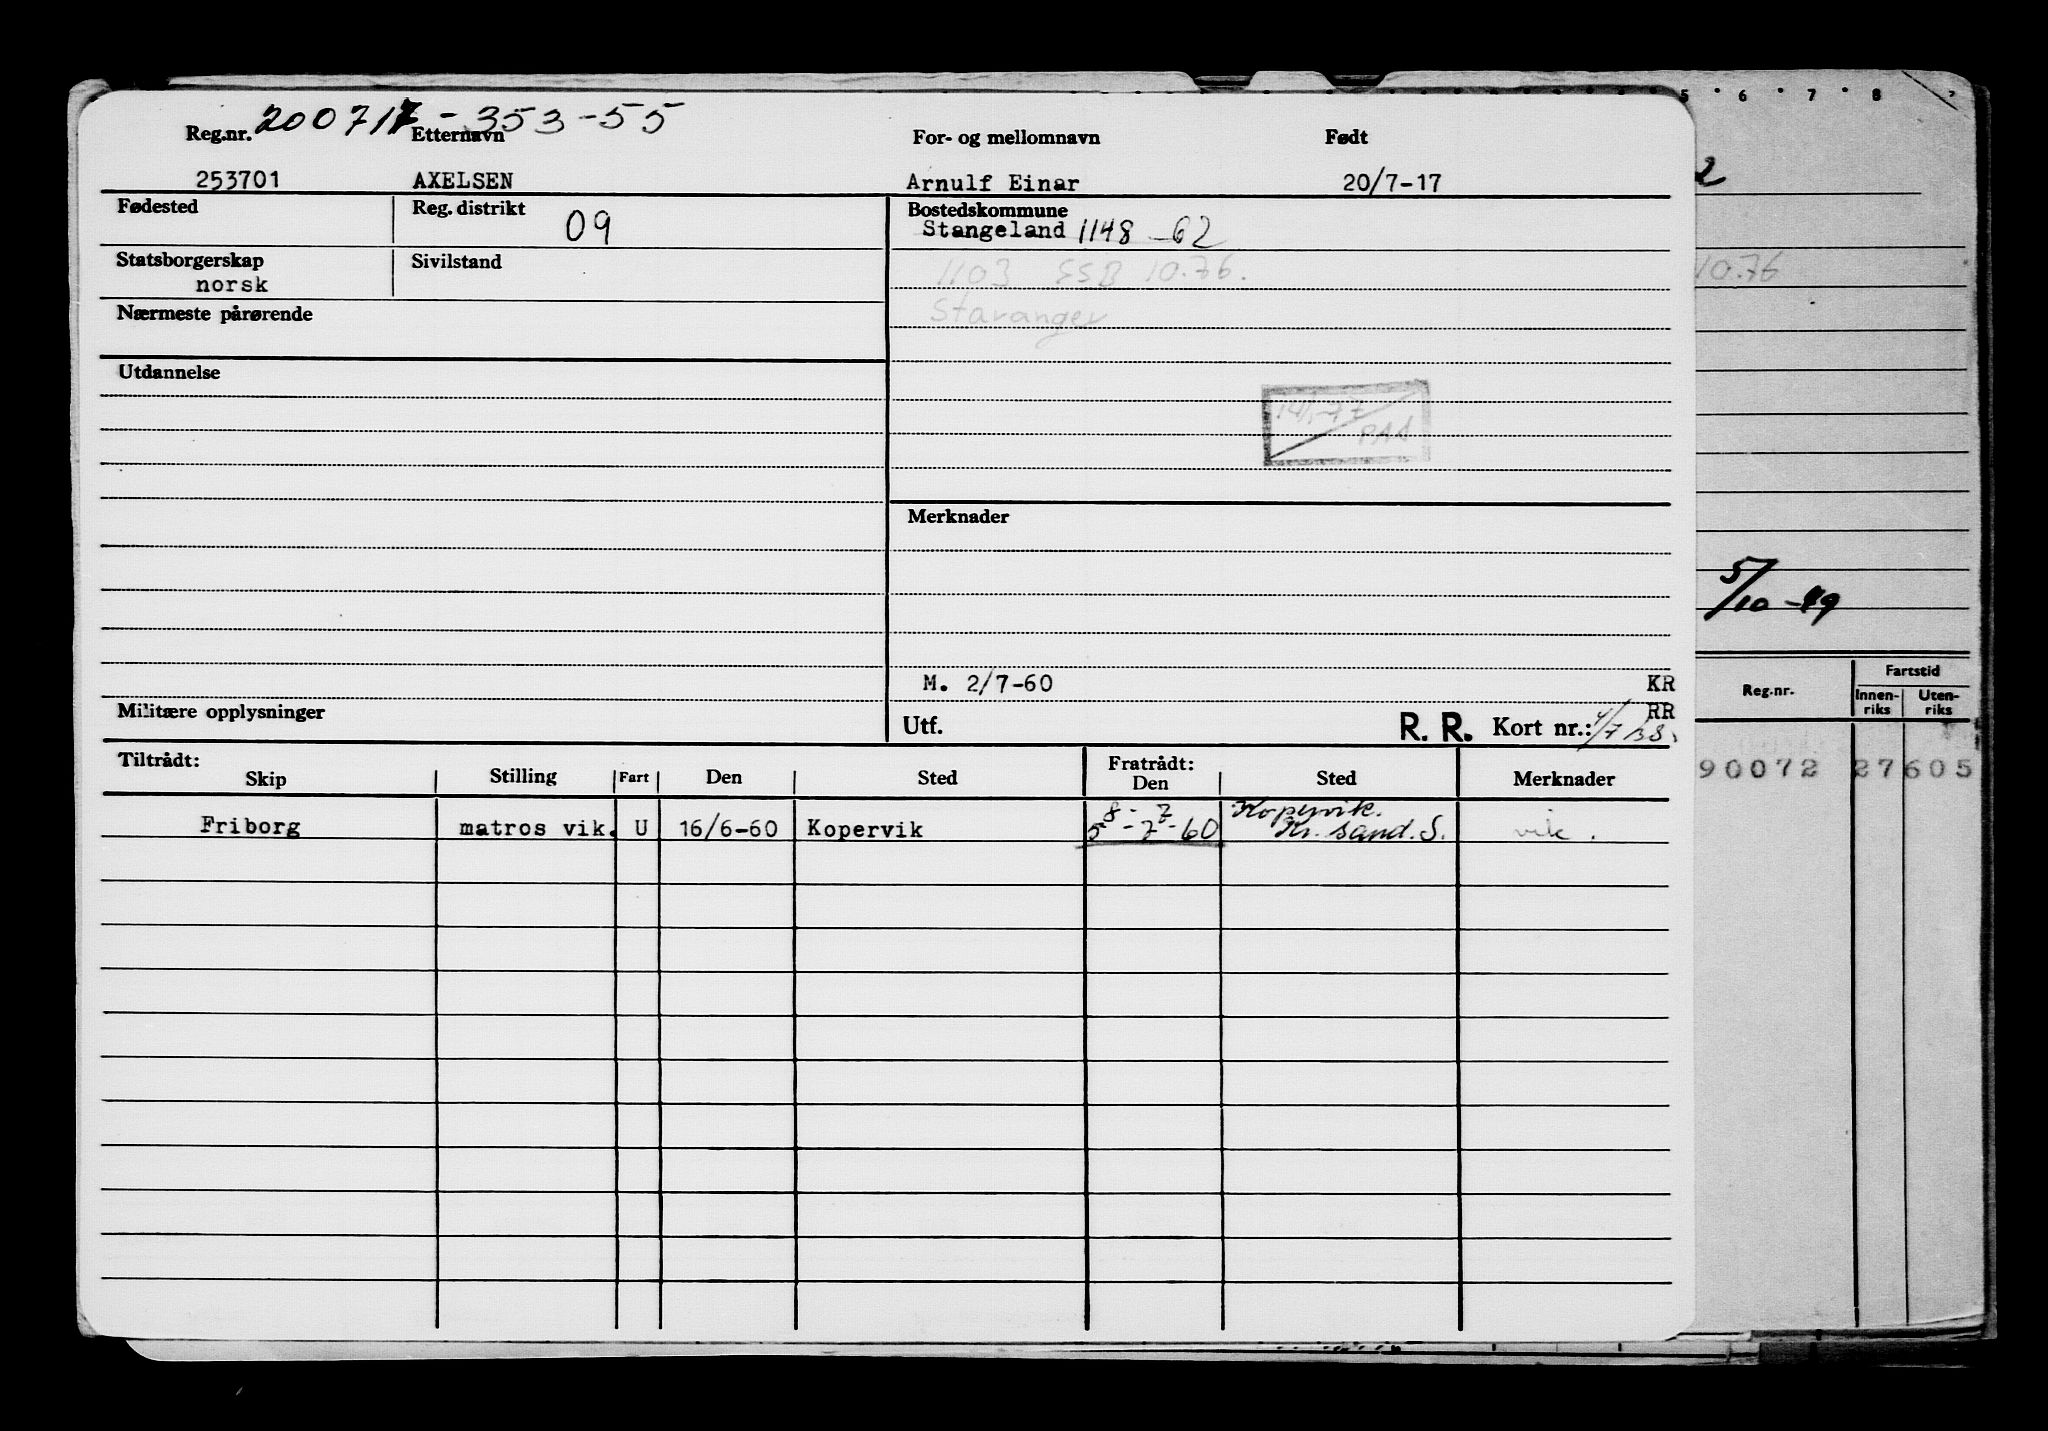 200717-353-55
Reg.nr. Etternavn For- og mellomnavn Født
253701 AXELSEN Arnulf Einar 20/7-17
Fødested Reg. distrikt 09 Bostedskommune
Stangeland 1148-62
Statsborgerskap Sivilstand
norsk
1103 SSB 10.76.
Stavanger
Nærmeste pårørende
Utdannelse
14/1-77
PAA
Merknader
M. 2/7-60 KR
RR
Militære opplysninger Utf. R. R. Kort nr.:
Tiltrådt: Fratrådt:
Skip Stilling Fart Den Sted Den Sted Merknader
8-7 Kopervik.
Friborg matros vik. U 16/6-60 Kopervik 5-7-60 Kr. sand. S. vik.
5 6 7 8
2
10.76
5/10-49
Reg.nr. Fartstid
Innen-riks Uten-riks
90072 27605